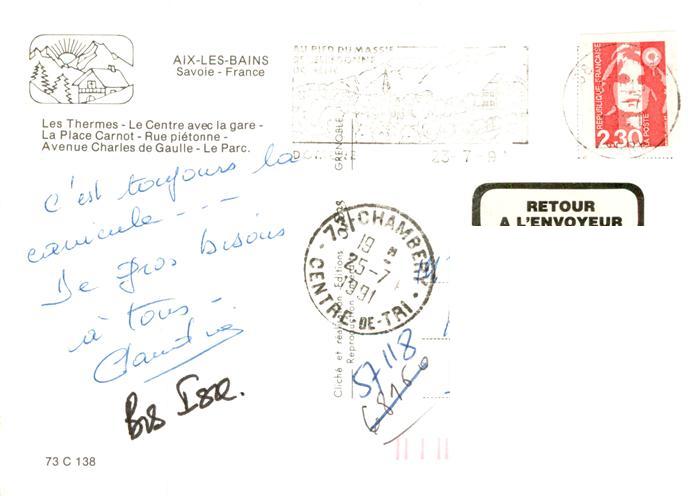 AIX-LES-BAINS
Savoie - France
Les Thermes - Le Centre avec la gare -
La Place Carnot - Rue piétonne -
Avenue Charles de Gaulle - Le Parc.
c'est toujours la
canicule ---
De gros bisous
à tous -
Bis Isa.
73 C 138
AU PIED DU MASSIF
23-7-91
REPUBLIQUE FRANÇAISE
2,30
LA POSTE
RETOUR
A L'ENVOYEUR
73 CHAMBERY
19 H
25-7
1991
CENTRE-DE-TRI
GRENOBLE
Cliché et réalisation Editions
Reproduction
57118
68160